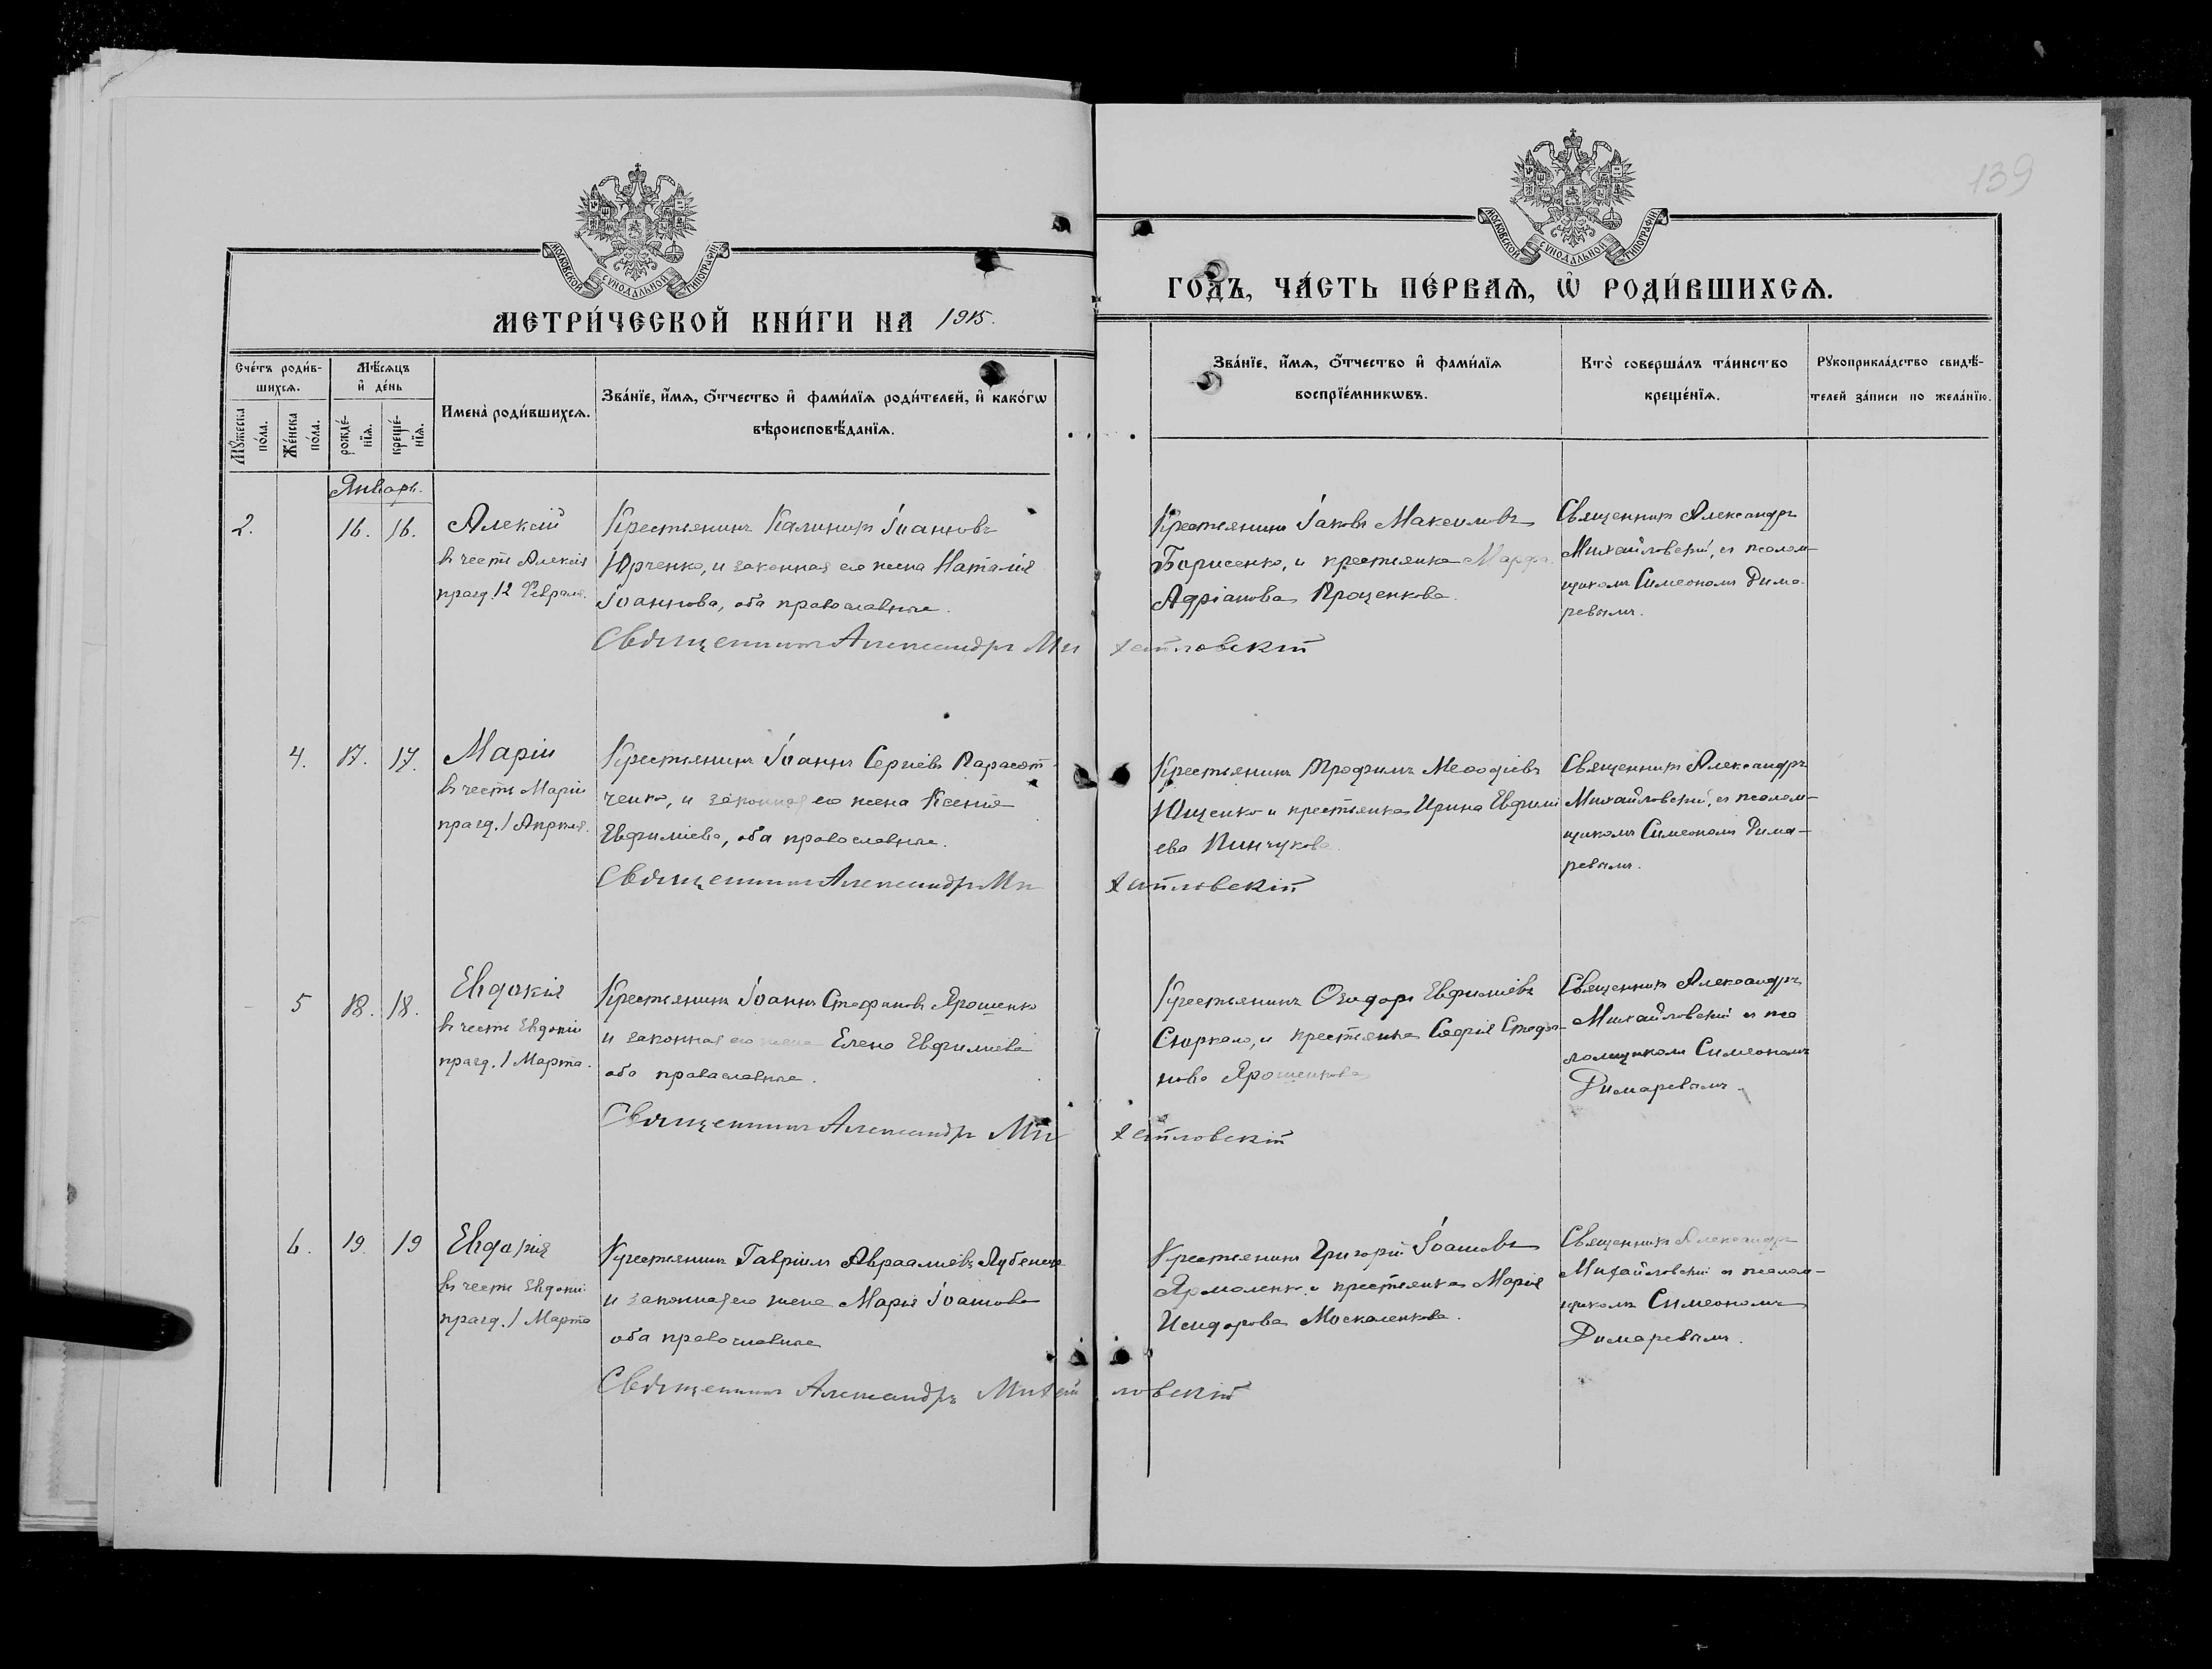 139
МОСКОВСКОЙ СѴНОДАЛЬНОЙ ТИПОГРАФІИ
МОСКОВСКОЙ СѴНОДАЛЬНОЙ ТИПОГРАФІИ
МЕТРИ́ЧЕСКОЙ КНИ́ГИ НА 1915.
ГОДЪ, ЧА́СТЬ ПЕ́РВАѦ, Ѡ РОДИ́ВШИХСѦ.
Сче́тъ роди́в-
шихсѧ.
Мѣ́сѧцъ
и҆ де́нь
Мꙋжеска
по́ла.
Же́нска
по́ла.
рожде́-
нїѧ.
креще́-
нїѧ.
Имена̀ роди́вшихсѧ.
Зва́нїе, и҆́мѧ, ѻ҆́тчество и҆ фами́лїѧ роди́телей, и҆ како́гѡ
вѣроисповѣ́данїѧ.
Зва́нїе, и҆́мѧ, ѻ҆́тчество и҆ фами́лїѧ
воспрїе́мникѡвъ.
Кто̀ соверша́лъ та́инство
креще́нїѧ.
Рꙋкоприкла́дство свидѣ́-
телей за́писи по жела́нїю.
Январь.
2. 16. 16.
Алексій
въ честь Алексія
празд. 12 Февраля.
Крестьянинъ Калиникъ Іоанновъ
Юрченко, и законная его жена Наталія
Іоаннова, оба православные.
Священникъ Александръ Михайловскій
Крестьянинъ Іаковъ Максимовъ
Борисенко, и крестьянка Марфа
Адріанова Проценкова.
Священникъ Александръ
Михайловскій, съ псалом-
щикомъ Симеономъ Дима-
ревымъ.
4. 17. 17.
Марія
въ честь Маріи
празд. 1 Апрѣля.
Крестьянинъ Іоаннъ Сергіевъ
ченко, и законная его жена Ксенія
Евфиміева, оба православные.
Священникъ Александръ Михайловскій
Крестьянинъ Трофимъ Меѳодіевъ
Ющенко и крестьянка Ирина Евфимі
ева Пинчукова.
Священникъ Александръ
Михайловскій, съ псалом-
щикомъ Симеономъ Дима-
ревымъ.
5 18. 18.
Евдокія
въ честь Евдокіи
празд. 1 Марта.
Крестьянинъ Іоаннъ Стефановъ Ярошенко
и законная его жена Елена Евфиміева
оба православные.
Священникъ Александръ Михайловскій
Крестьянинъ Евфиміевъ
и крестьянка Софія Стефа-
нова Ярошенкова
Священникъ Александръ
Михайловскій съ пса
ломщикомъ Симеономъ
Димаревымъ.
6. 19. 19
Евдокія
въ честь Евдокіи
празд. 1 Марта
Крестьянинъ Гавріилъ Аврааміевъ
и законная его жена Марія Іоаннова
оба православные
Священникъ Александръ Михайловскій
Крестьянинъ Григорій Іоанновъ
Ярмоленко, и крестьянка Марія
Исидорова Москаленкова.
Священникъ Александръ
Михайловскій съ псалом-
щикомъ Симеономъ
Димаревымъ.